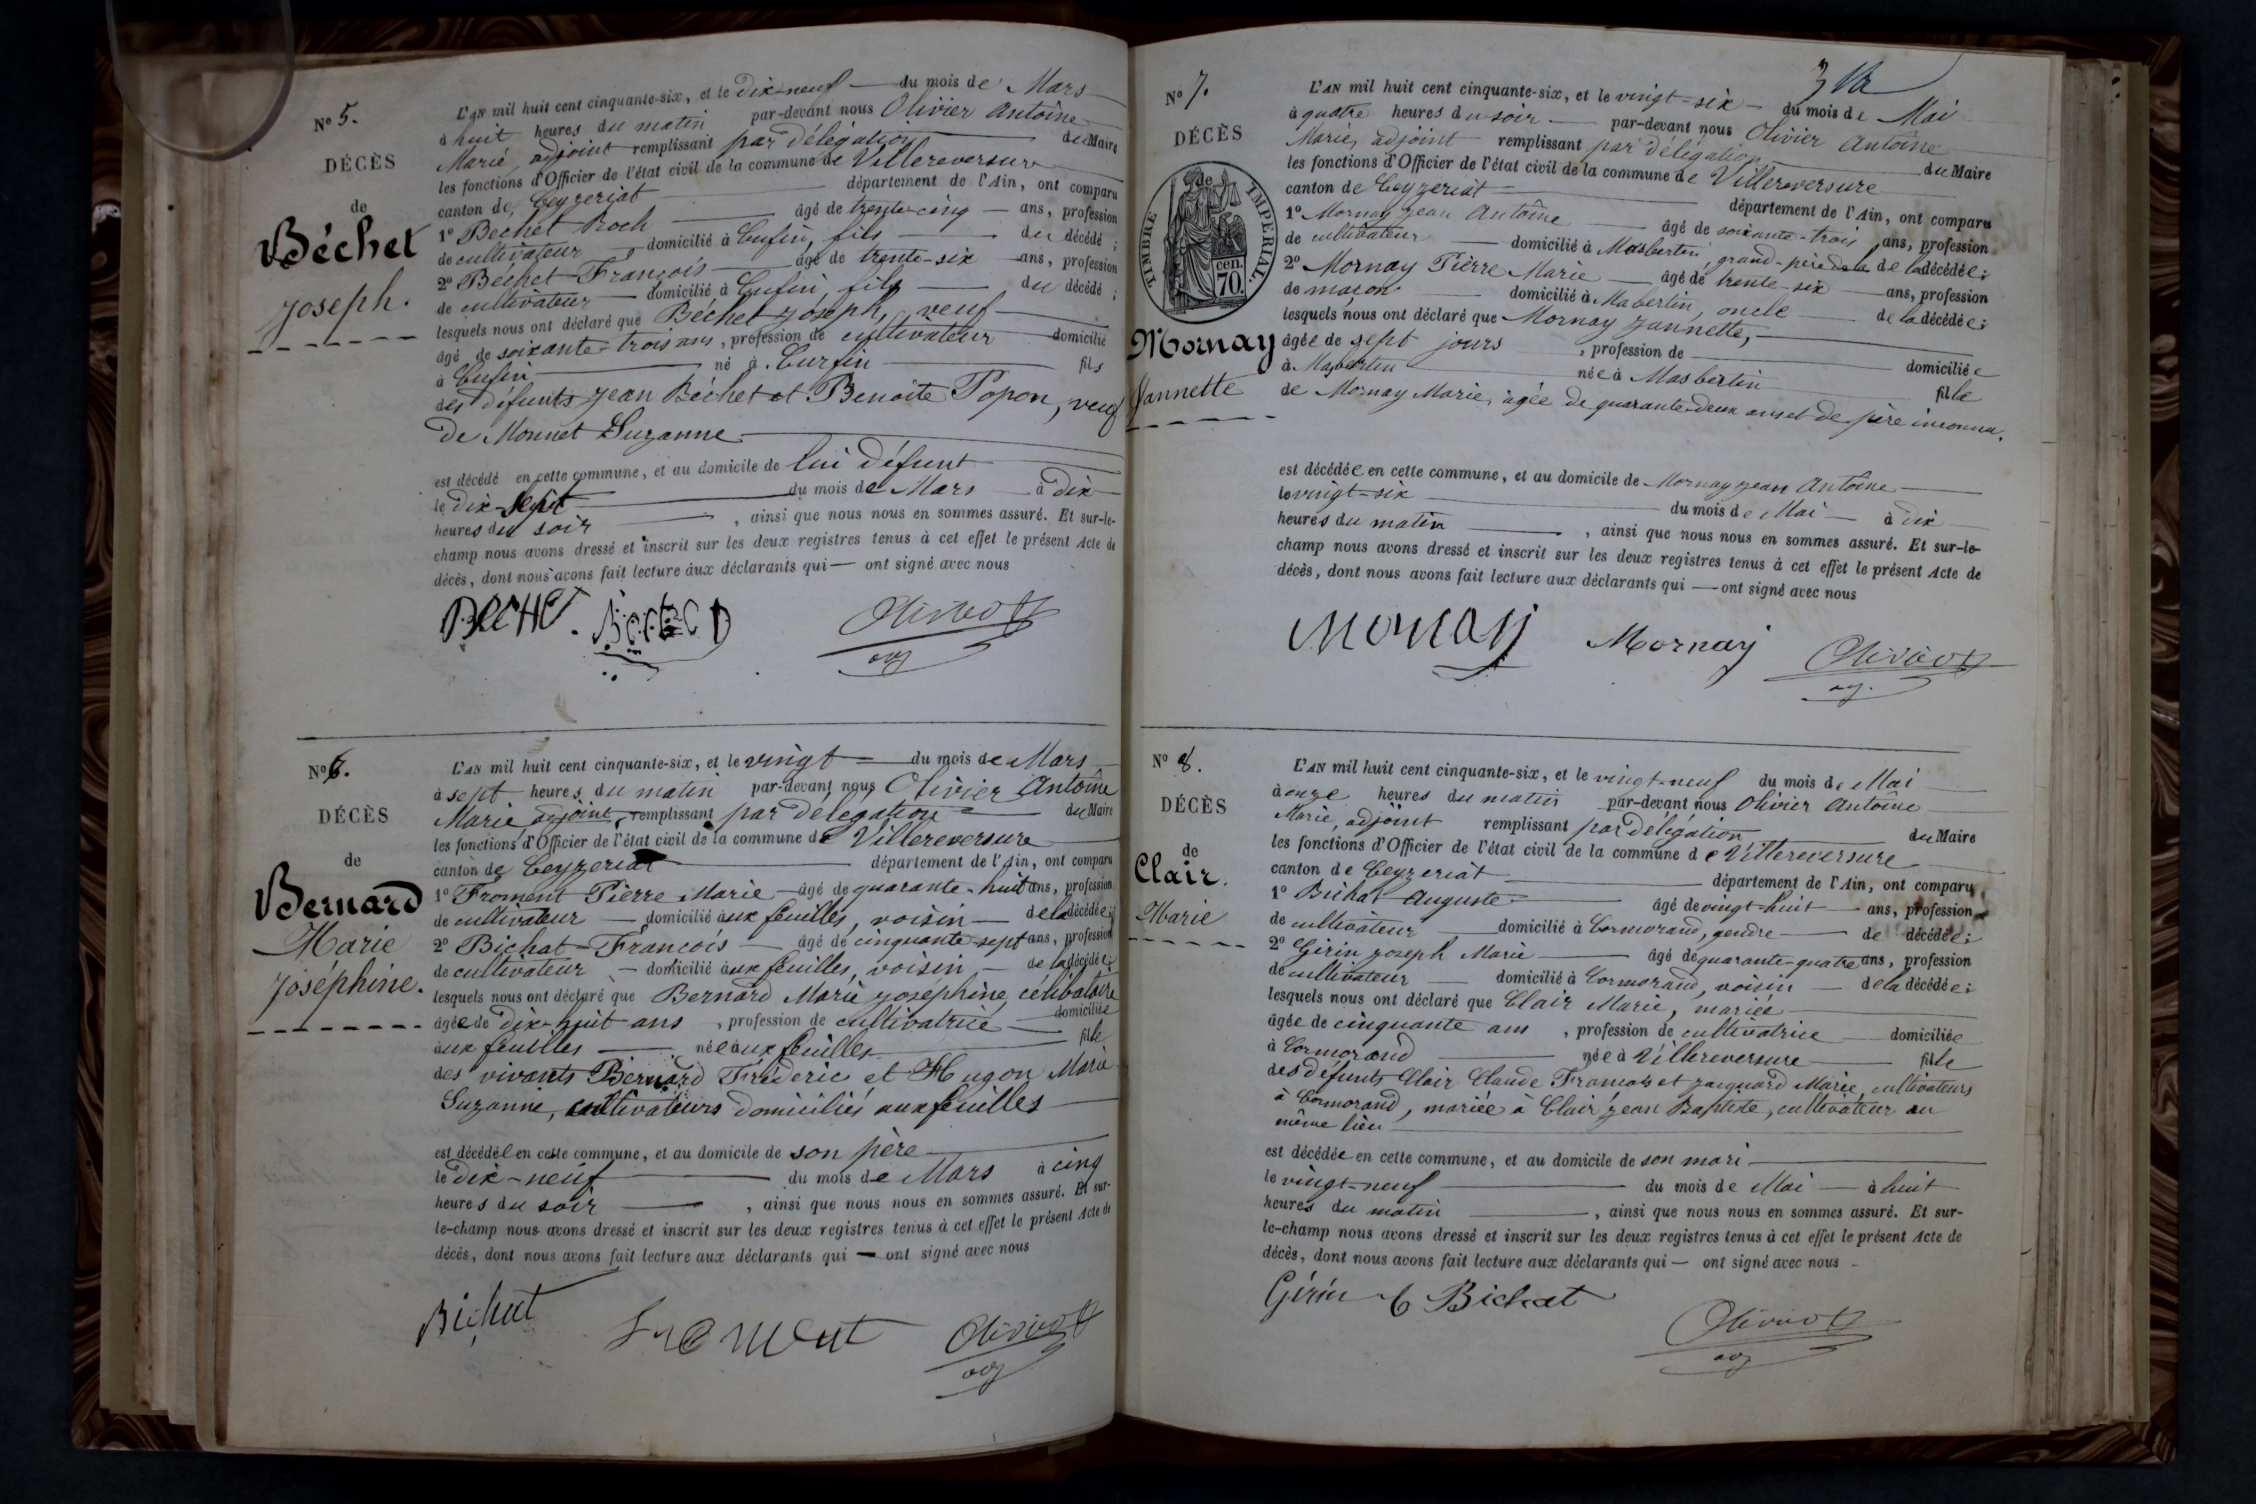 N° 5.
DÉCÈS
de
Béchet
Joseph.
L'AN mil huit cent cinquante-six, et le dix-neuf du mois de Mars
à huit heures du matin par-devant nous Olivier Antoine
Marié, adjoint remplissant par délégation du Maire
les fonctions d'Officier de l'état civil de la commune de Villereversure
canton de Ceyzeriat département de l'Ain, ont comparu
1° Bechet Roch âgé de trente-cinq ans, profession
de cultivateur, domicilié à Cufin, fils du décédé ;
2° Béchet François âgé de trente-six ans, profession
de cultivateur domicilié à Cufin, fils du décédé ;
lesquels nous ont déclaré que Béchet Joseph, veuf
âgé de soixante-trois ans, profession de cultivateur domicilié
à Cufin né à Curfin fils
des défunts Jean Béchet et Benoite Popon, veuf
de Monnet Suzanne
est décédé en cette commune, et au domicile de lui défunt
le dix-sept du mois de Mars à dix
heures du soir, ainsi que nous nous en sommes assuré. Et sur-le-
champ nous avons dressé et inscrit sur les deux registres tenus à cet effet le présent Acte de
décès, dont nous avons fait lecture aux déclarants qui — ont signé avec nous
BECHET Olivier
adj
N° 6.
DÉCÈS
de
Bernard
Marie
Joséphine.
L'AN mil huit cent cinquante-six, et le vingt du mois de Mars
à sept heures du matin par-devant nous Olivier Antoine
Marié adjoint, remplissant par délégation du Maire
les fonctions d'Officier de l'état civil de la commune de Villereversure
canton de Ceyzeriat département de l'Ain, ont comparu
1° Froment Pierre Marie âgé de quarante-huit ans, profession
de cultivateur domicilié aux feuilles, voisin de la décédée ;
2° Bichat François âgé de cinquante-sept ans, profession
de cultivateur domicilié aux feuilles, voisin de la décédée ;
lesquels nous ont déclaré que Bernard Marie Joséphine, célibataire
âgée de dix-huit ans, profession de cultivatrice domiciliée
aux feuilles née aux feuilles fille
des vivants Bernard Fréderic et Hugon Marie
Suzanne, cultivateurs domiciliés aux feuilles
est décédée en cette commune, et au domicile de son père
le dix-neuf du mois de Mars à cinq
heures du soir, ainsi que nous nous en sommes assuré. Et sur-
le-champ nous avons dressé et inscrit sur les deux registres tenus à cet effet le présent Acte de
décès, dont nous avons fait lecture aux déclarants qui — ont signé avec nous
Bichat Froment Olivier
adj
N° 7.
DÉCÈS
de
TIMBRE IMPÉRIAL.
70. cen.
Mornay
Jannette
L'AN mil huit cent cinquante-six, et le vingt-six du mois de Mai
à quatre heures du soir par-devant nous Olivier Antoine
Marié, adjoint remplissant par délégation du Maire
les fonctions d'Officier de l'état civil de la commune de Villereversure
canton de Ceyzeriat département de l'Ain, ont comparu
1° Mornay Jean Antoine âgé de soixante-trois ans, profession
de cultivateur domicilié à Masbertin, grand-père de la décédée ;
2° Mornay Pierre Marie âgé de trente-six ans, profession
de maçon domicilié à Mabertin, oncle de la décédée ;
lesquels nous ont déclaré que Mornay Jannette,
âgée de sept jours, profession de domiciliée
à Masbertin née à Masbertin fille
de Mornay Marie, agée de quarante-deux ans et de père inconnu.
est décédée en cette commune, et au domicile de Mornay Jean Antoine
le vingt-six du mois de Mai à dix
heures du matin, ainsi que nous nous en sommes assuré. Et sur-le-
champ nous avons dressé et inscrit sur les deux registres tenus à cet effet le présent Acte de
décès, dont nous avons fait lecture aux déclarants qui — ont signé avec nous
Mornay Mornay Olivier
adj.
N° 8.
DÉCÈS
de
Clair.
Marie
L'AN mil huit cent cinquante-six, et le vingt-neuf du mois de Mai
à onze heures du matin par-devant nous Olivier Antoine
Marie, adjoint remplissant par délégation du Maire
les fonctions d'Officier de l'état civil de la commune de Villereversure
canton de Ceyzeriat département de l'Ain, ont comparu
1° Bichat Auguste âgé de vingt-huit ans, profession
de cultivateur domicilié à Cormorand, gendre de décédée ;
2° Girin Joseph Marie âgé de quarante-quatre ans, profession
de cultivateur domicilié à Cormorand, voisin de la décédée ;
lesquels nous ont déclaré que Clair Marie, mariée
âgée de cinquante ans, profession de cultivatrice domiciliée
à Cormorand née à Villereversure fille
des défunts Clair Claude François et Jacquard Marie, cultivateurs
à Cormorand, mariée à Clair Jean Baptiste, cultivateur au
même lieu
est décédée en cette commune, et au domicile de son mari
le vingt-neuf du mois de Mai à huit
heures du matin, ainsi que nous nous en sommes assuré. Et sur-
le-champ nous avons dressé et inscrit sur les deux registres tenus à cet effet le présent Acte de
décès, dont nous avons fait lecture aux déclarants qui — ont signé avec nous
Girin Bichat
Olivier
adj